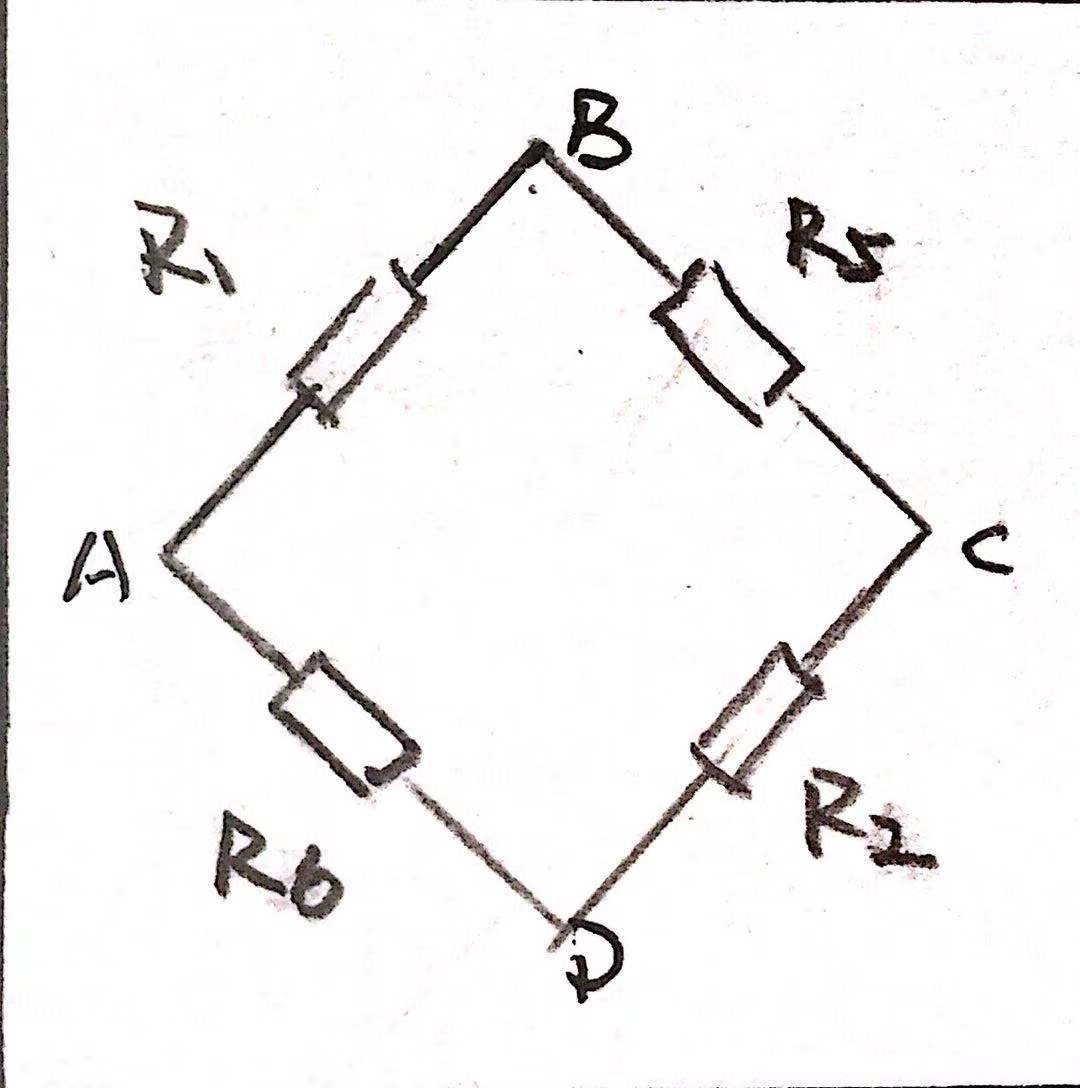 B
R1
R5
A
C
R6
R2
D